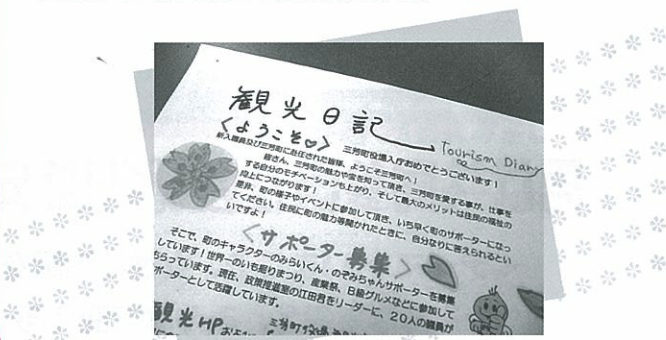 観光日記
Tourism Diary
<ようこそ♡>
三芳町役場入庁おめでとうございます!
新入職員及び三芳町に赴任された皆様、ようこそ三芳町へ!
皆さん、三芳町の魅力や宝を知って頂き、三芳町を愛する事が、仕事を
する自分のモチベーションも上がり、そして最大のメリットは住民の福祉の
向上につながります!
是非、町の様子やイベントに参加して頂き、いち早く町のサポーターになっ
てください。住民に町の魅力等聞かれたときに、自分なりに答えられるとい
いですよ!
<サポーター募集>
そこで、町のキャラクターのみらいくん・のぞみちゃんサポーターを募集
しています!世界一のいも掘りまつり、産業祭、B級グルメなどに参加して
もらっています。現在、政策推進室の江田君をリーダーに、20人の職員が
ポーターとして活躍しています。
観光HP